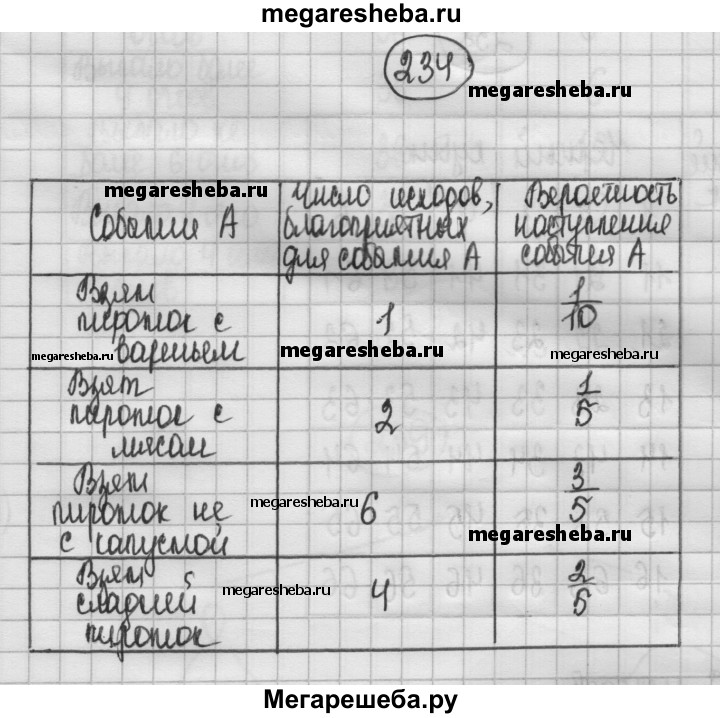 megaresheba.ru
234
megaresheba.ru
megaresheba.ru
События А
Число исходов,
благоприятных
для события А
Вероятность
наступления
события А
Взят
пирожок с
вареньем
1
1/10
megaresheba.ru
megaresheba.ru
megaresheba.ru
Взят
пирожок с
мясом
2
1/5
Взят
пирожок не
с капустой
6
3/5
megaresheba.ru
megaresheba.ru
Взят
сладкий
пирожок
4
2/5
megaresheba.ru
Мегарешеба.ру